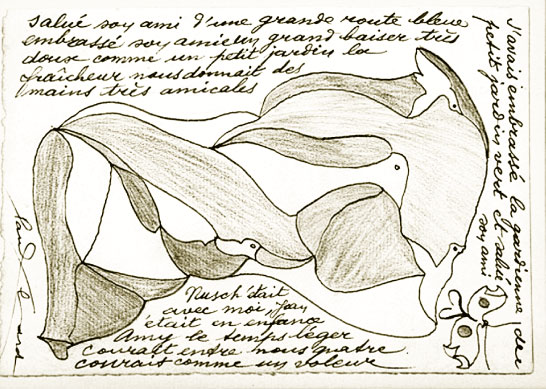 salué soy ami d'une grande route bleue
embrassé soy amieux grand baiser très
doux comme un petit jardin la
fraîcheur nous donnait des
mains très amicales
J'avais embrassé la gardienne des
petit jardin vert et salué
soy ami
Nusch était
avec moi, Joan
était en enfance
Amy le temps léger
courait entre nous quatre
courait comme un voleur
Paul Eluard